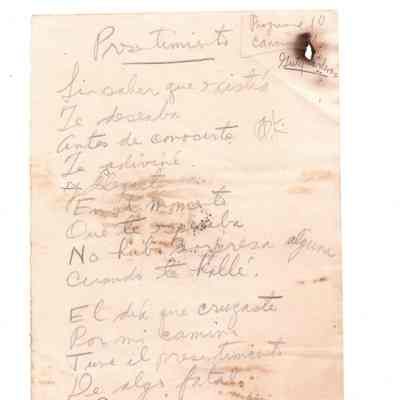 Presentimiento
Programa 10
Sin saber que existía
Te deseaba
Antes de conocerte
Te adiviné.
Llegaste
En el momento
Que te esperaba
No hubo sorpresa alguna
Cuando te hallé.
El día que cruzaste
Por mi camino
Tuve el presentimiento
De algo fatal.